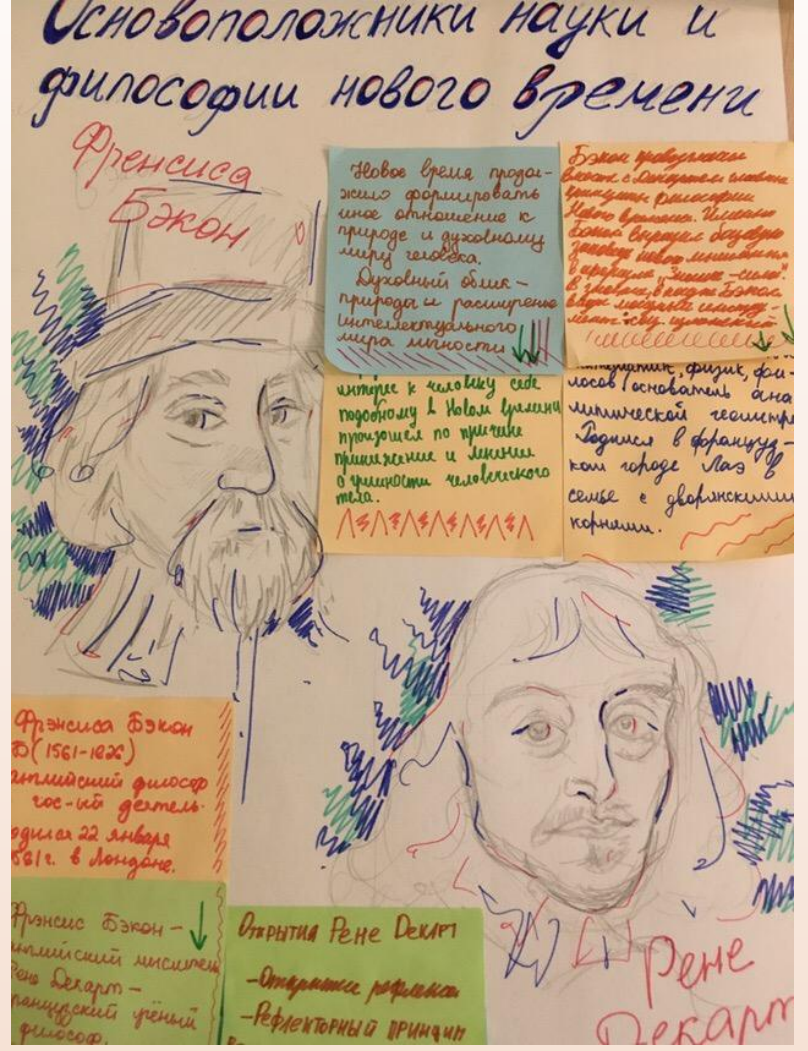 Основоположники науки и
философии нового времени
Френсиса
Бэкон
Новое время продол-
жило формировать
иное отношение к
природе и духовному
миру человека.
Духовный облик-
природа и расширение
интеллектуального
мира личности
Бэкон
вместе с Декартом
принципы философии
Нового времени. Именно
Бэкон выразил базовую
заповедь нового мышления
"знание-сила"
интерес к человеку себе
подобному в Новом времени
произошел по причине
принижение и мнения
о человеческого
тела.
математик, физик, фи-
лософ, основатель ана
литической геометри
Родился в француз-
ком городе Лаэ в
семье с дворянскими
корнями.
Фрэнсиса Бэкон
(1561-1626)
английский философ
гос-ый деятель.
родился 22 января
1561г. в Лондоне.
Фрэнсис Бэкон-
английский мыслитель
Рене Декарт-
французский учёный
философ.
Открытия Рене Декарт
-Открытие рефлекса
-Рефлекторный принцип
Рене
Декарт